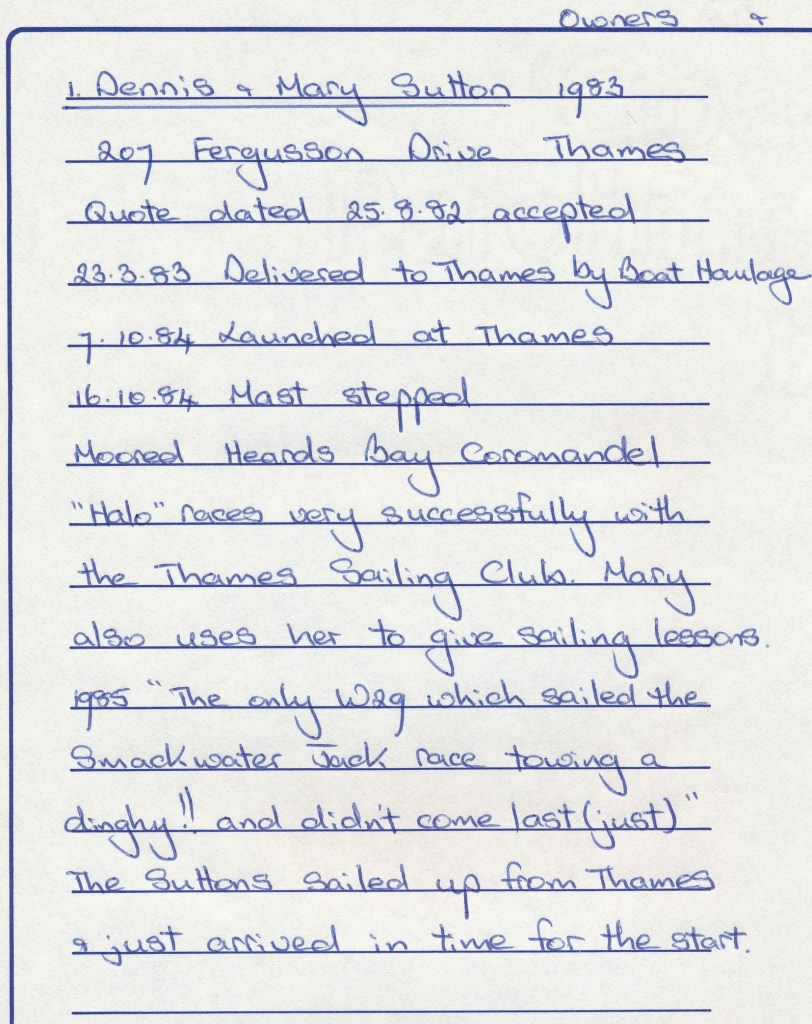 Owners &
1. Dennis & Mary Sutton 1983
207 Fergusson Drive Thames
Quote dated 25.8.82 accepted
23.3.83 Delivered to Thames by Boat Haulage
7.10.84 Launched at Thames
16.10.84 Mast stepped
Moored Heards Bay Coromandel
"Halo" races very successfully with
the Thames Sailing Club. Mary
also uses her to give sailing lessons.
1985 "The only W29 which sailed the
Smackwater Jack race towing a
dinghy!! and didn't come last (just)"
The Suttons sailed up from Thames
& just arrived in time for the start.